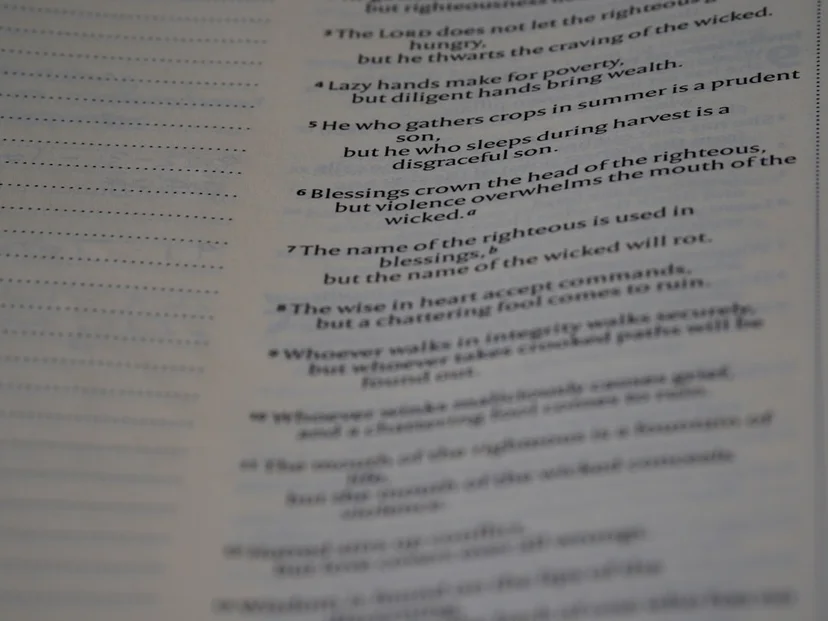 but righteousness
³ The LORD does not let the righteous
hungry,
but he thwarts the craving of the wicked.
⁴ Lazy hands make for poverty,
but diligent hands bring wealth.
⁵ He who gathers crops in summer is a prudent
son,
but he who sleeps during harvest is a
disgraceful son.
⁶ Blessings crown the head of the righteous,
but violence overwhelms the mouth of the
wicked. ᵃ
⁷ The name of the righteous is used in
blessings, ᵇ
but the name of the wicked will rot.
⁸ The wise in heart accept commands,
but a chattering fool comes to ruin.
⁹ Whoever walks in integrity walks securely,
but whoever takes crooked paths will be
found out.
¹⁰ Whoever winks maliciously causes grief,
and a chattering fool comes to ruin.
¹¹ The mouth of the righteous is a fountain of
life,
but the mouth of the wicked conceals
violence.